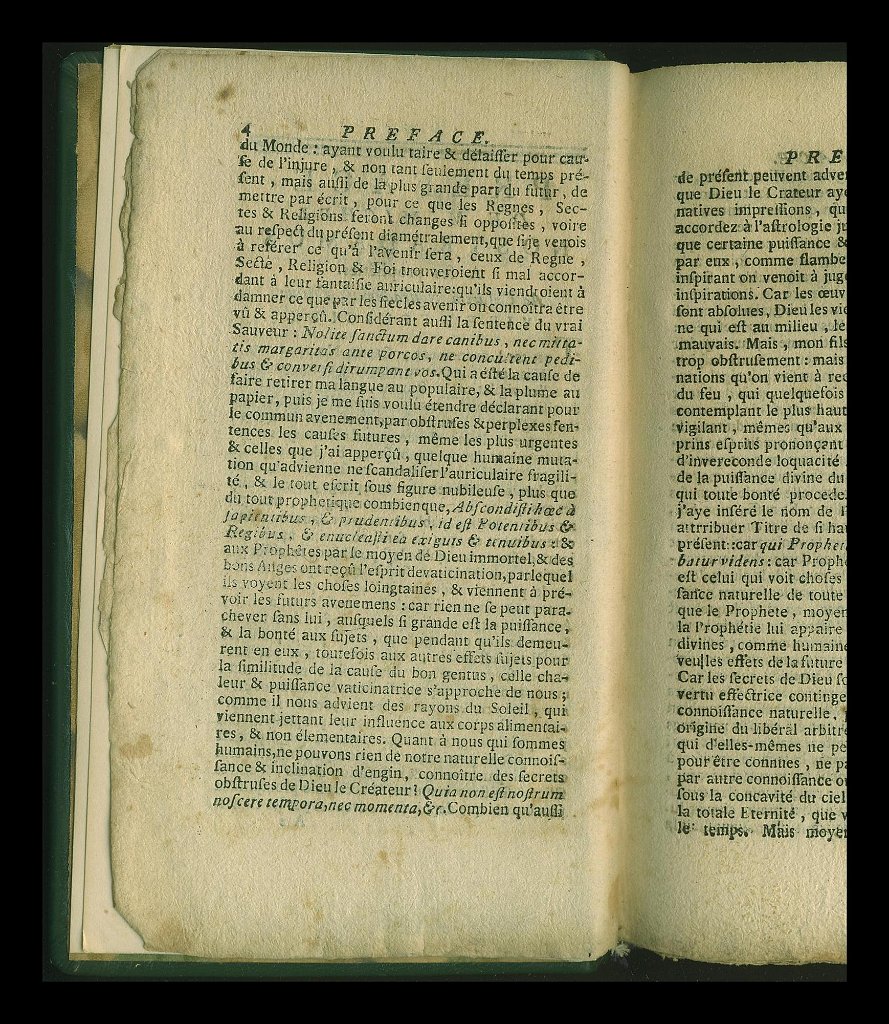 4 PREFACE.
du Monde : ayant voulu taire & délaiſſer pour cau-
ſe de l'injure, & non tant ſeulement du temps pré-
ſent, mais auſſi de la plus grande part du futur, de
mettre par écrit, pour ce que les Regnes, Sec-
tes & Religions feront changes ſi oppoſites, voire
au reſpect du préſent diamétralement, que ſi je venois
à reférer ce qu'à l'avenir ſera, ceux de Regne,
Secte, Religion & Foi trouveroient ſi mal accor-
dant à leur fantaiſie auriculaire: qu'ils viendroient à
damner ce que par les ſiecles avenir on connoîtra être
vû & apperçû. Conſidérant auſſi la ſentence du vrai
Sauveur : Nolite ſanctum dare canibus, nec mitta-
tis margaritas ante porcos, ne conculcent pedi-
bus & converſi dirumpant vos. Qui a éſté la cauſe de
faire retirer ma langue au populaire, & la plume au
papier, puis je me ſuis voulu étendre déclarant pour
le commun avenement, par obſtruſes & perplexes ſen-
tences les cauſes futures, même les plus urgentes
& celles que j'ai apperçû, quelque humaine muta-
tion qu'advienne ne ſcandaliſer l'auriculaire fragili-
té, & le tout eſcrit ſous figure nubileuſe, plus que
du tout prophetique combien que, Abſcondiſti hæc à
ſapientibus, & prudentibus, id eſt Potentibus &
Regibus, & enucleaſti ea exiguis & tenuibus : &
aux Prophêtes par le moyen de Dieu immortel, & des
bons Anges ont reçû l'eſprit de vaticination, par lequel
ils voyent les choſes loingtaines, & viennent à pré-
voir les futurs avenemens : car rien ne ſe peut para-
chever ſans lui, auſquels ſi grande eſt la puiſſance,
& la bonté aux ſujets, que pendant qu'ils demeu-
rent en eux, toutefois aux autres effets ſujets pour
la ſimilitude de la cauſe du bon gentus, celle cha-
leur & puiſſance vaticinatrice s'approche de nous ;
comme il nous advient des rayons du Soleil, qui
viennent jettant leur influence aux corps alimentai-
res, & non élementaires. Quant à nous qui ſommes
humains, ne pouvons rien de notre naturelle connoiſ-
ſance & inclination d'engin, connoître des ſecrets
obſtruſes de Dieu le Créateur ! Quia non eſt noſtrum
noſcere tempora, nec momenta, &c. Combien qu'auſſi
PRE
de préſent peuvent adve
que Dieu le Crateur ay
natives impreſſions, qu
accordez à l'aſtrologie j
que certaine puiſſance &
par eux, comme flambe
inſpirant on venoit à jug
inſpirations. Car les œuv
ſont abſolues, Dieu les vi
ne qui eſt au milieu, le
mauvais. Mais, mon fils
trop obſtruſement : mais
nations qu'on vient à re
du feu, qui quelquefois
contemplant le plus haut
vigilant, mêmes qu'aux
prins eſprits prononçant
d'invereconde loquacité
de la puiſſance divine du
qui toute bonté procede.
j'aye inféré le nom de
attrribuer Titre de ſi ha
préſent : car qui Prophet
batur videns : car Proph
eſt celui qui voit choſes
ſance naturelle de toute
que le Prophete, moyen
la Prophétie lui appaire
divines, comme humain
veulles effets de la future
Car les ſecrets de Dieu ſo
vertu effectrice continge
connoiſſance naturelle,
origine du libéral arbitr
qui d'elles-mêmes ne pe
pour être connues, ne p
par autre connoiſſance o
ſous la concavité du ciel
la totale Eternité, que v
le temps. Mais moye